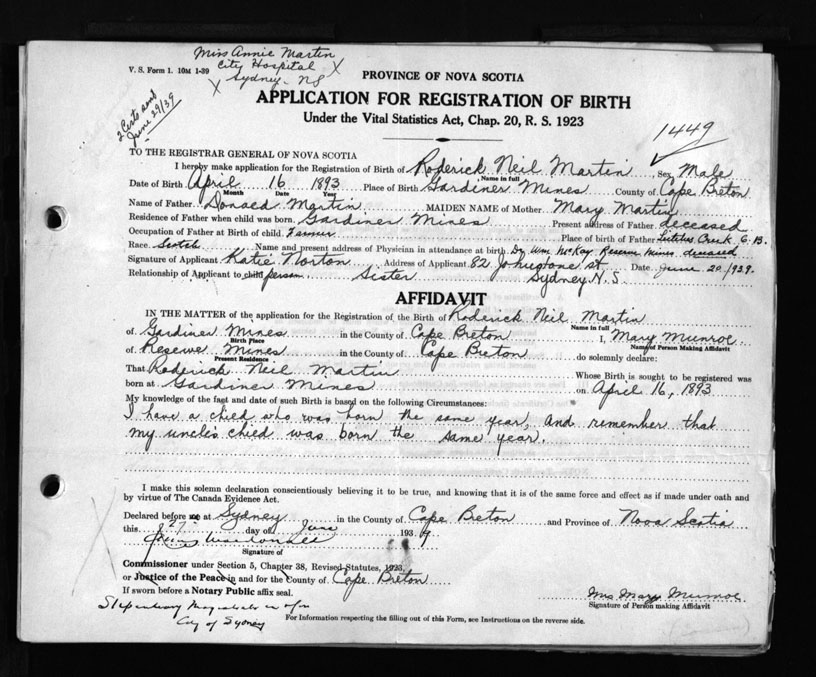 Miss Annie Martin
City Hospital X
X Sydney - NS
V. S. Form 1. 10M 1-39
2 Certs sent
June 29/39
PROVINCE OF NOVA SCOTIA
APPLICATION FOR REGISTRATION OF BIRTH
Under the Vital Statistics Act, Chap. 20, R. S. 1923
1449
TO THE REGISTRAR GENERAL OF NOVA SCOTIA
I hereby make application for the Registration of Birth of Roderick Neil Martin Sex Male
Name in full
Date of Birth April 16 1893 Place of Birth Gardiner Mines County of Cape Breton
Month Date Year
Name of Father Donald Martin MAIDEN NAME of Mother Mary Martin
Residence of Father when child was born. Gardiner Mines Present address of Father deceased
Occupation of Father at Birth of child. Farmer Place of birth of Father Leitches Creek C.B.
Race. Scotch Name and present address of Physician in attendance at birth Dr. Wm McKay Reserve Mines deceased
Signature of Applicant Katie Norton Address of Applicant 82 Johnstone st Date June 20/1939.
Relationship of Applicant to child person Sister Sydney N.S
AFFIDAVIT
IN THE MATTER of the application for the Registration of the Birth of Roderick Neil Martin
Name in full
of Gardiner Mines in the County of Cape Breton I, Mary Munroe
Birth Place Name of Person Making Affidavit
of Reserve Mines in the County of Cape Breton do solemnly declare:
Present Residence
That Roderick Neil Martin Whose Birth is sought to be registered was
born at Gardiner Mines on April 16, 1893
My knowledge of the fact and date of such Birth is based on the following Circumstances:
I have a child who was born the same year, and remember that
my uncles child was born the same year.
I make this solemn declaration conscientiously believing it to be true, and knowing that it is of the same force and effect as if made under oath and
by virtue of The Canada Evidence Act.
Declared before me at Sydney in the County of Cape Breton and Province of Nova Scotia
this 27 day of June 1939
Signature of
Commissioner under Section 5, Chapter 38, Revised Statutes, 1923,
or Justice of the Peace in and for the County of Cape Breton
If sworn before a Notary Public affix seal.
Mrs Mary Munroe
Signature of Person making Affidavit
Stipendiary Magistrate in &
City of Sydney
For Information respecting the filling out of this Form, see Instructions on the reverse side.